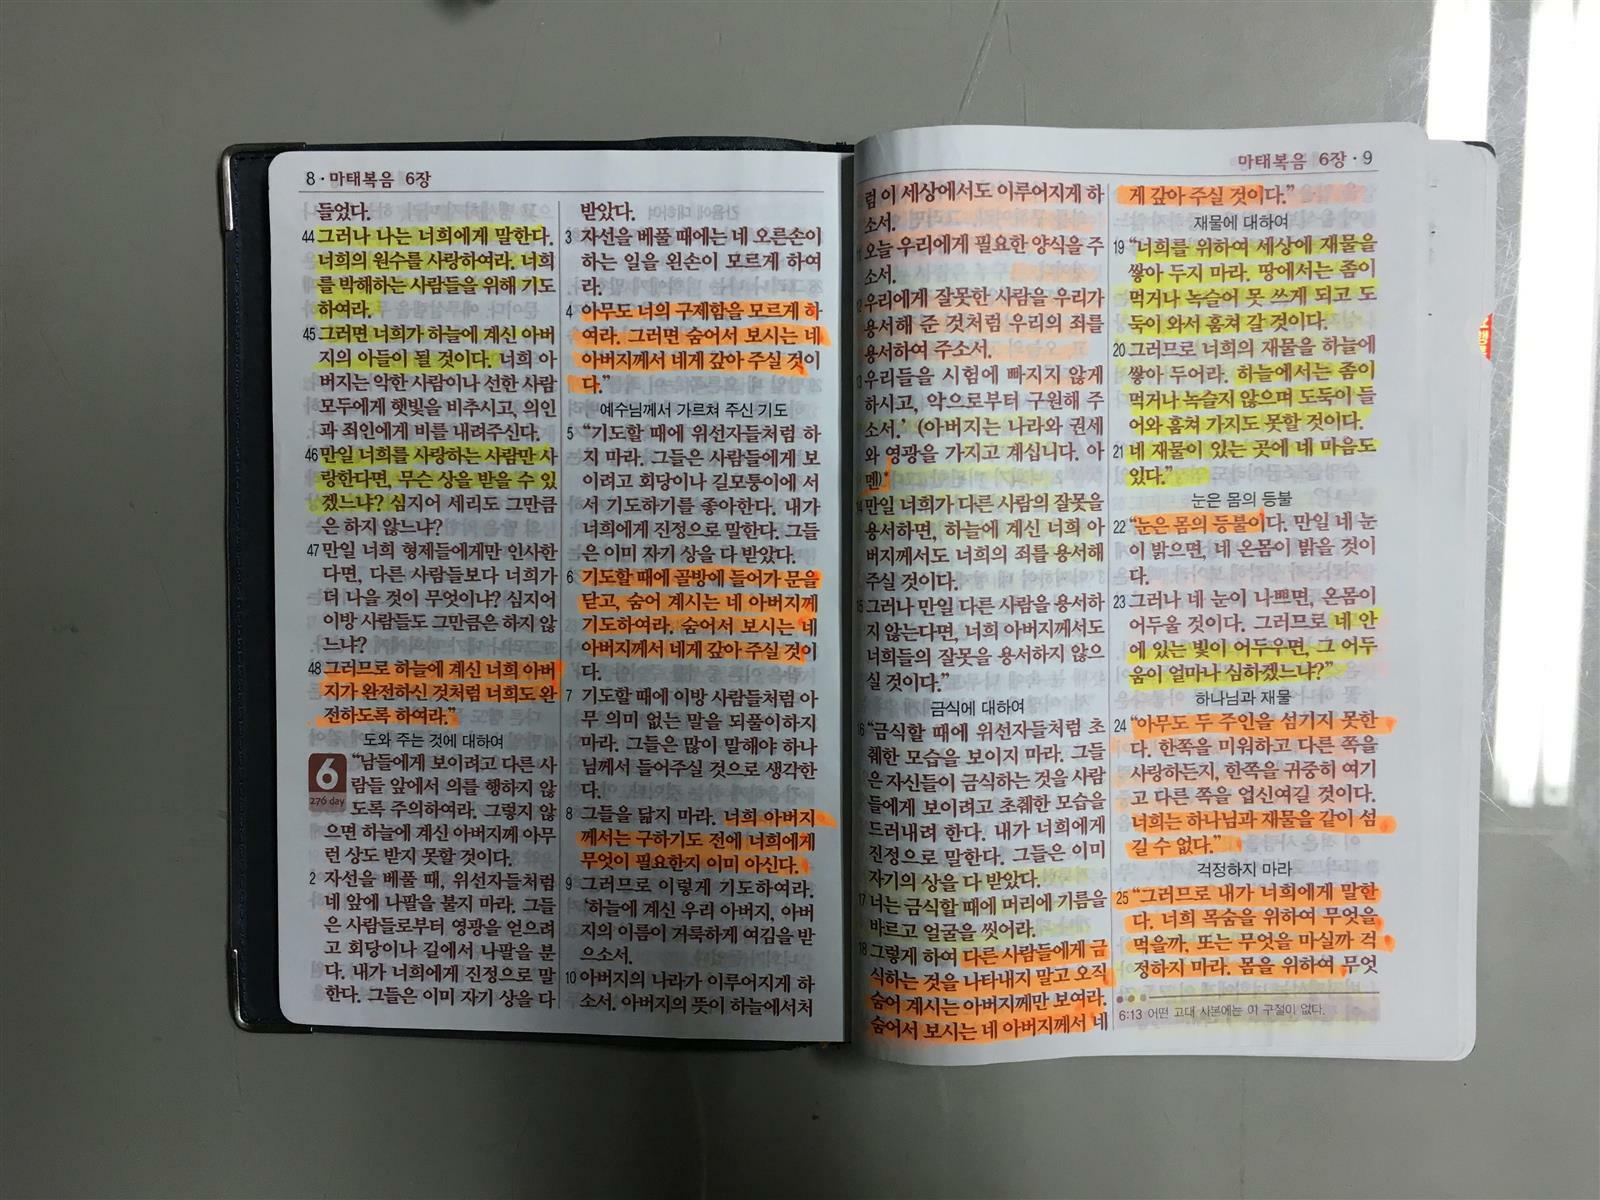 8 · 마태복음 6장
들었다.
44 그러나 나는 너희에게 말한다.
너희의 원수를 사랑하여라. 너희
를 박해하는 사람들을 위해 기도
하여라.
45 그러면 너희가 하늘에 계신 아버
지의 아들이 될 것이다. 너희 아
버지는 악한 사람이나 선한 사람
모두에게 햇빛을 비추시고, 의인
과 죄인에게 비를 내려주신다.
46 만일 너희를 사랑하는 사람만 사
랑한다면, 무슨 상을 받을 수 있
겠느냐? 심지어 세리도 그만큼
은 하지 않느냐?
47 만일 너희 형제들에게만 인사한
다면, 다른 사람들보다 너희가
더 나을 것이 무엇이냐? 심지어
이방 사람들도 그만큼은 하지 않
느냐?
48 그러므로 하늘에 계신 너희 아버
지가 완전하신 것처럼 너희도 완
전하도록 하여라.”
도와 주는 것에 대하여
6 “남들에게 보이려고 다른 사
276 day 람들 앞에서 의를 행하지 않
도록 주의하여라. 그렇지 않
으면 하늘에 계신 아버지께 아무
런 상도 받지 못할 것이다.
2 자선을 베풀 때, 위선자들처럼
네 앞에 나팔을 불지 마라. 그들
은 사람들로부터 영광을 얻으려
고 회당이나 길에서 나팔을 분
다. 내가 너희에게 진정으로 말
한다. 그들은 이미 자기 상을 다
받았다.
3 자선을 베풀 때에는 네 오른손이
하는 일을 왼손이 모르게 하여
라.
4 아무도 너의 구제함을 모르게 하
여라. 그러면 숨어서 보시는 네
아버지께서 네게 갚아 주실 것이
다.”
예수님께서 가르쳐 주신 기도
5 “기도할 때에 위선자들처럼 하
지 마라. 그들은 사람들에게 보
이려고 회당이나 길모퉁이에 서
서 기도하기를 좋아한다. 내가
너희에게 진정으로 말한다. 그들
은 이미 자기 상을 다 받았다.
6 기도할 때에 골방에 들어가 문을
닫고, 숨어 계시는 네 아버지께
기도하여라. 숨어서 보시는 네
아버지께서 네게 갚아 주실 것이
다.
7 기도할 때에 이방 사람들처럼 아
무 의미 없는 말을 되풀이하지
마라. 그들은 많이 말해야 하나
님께서 들어주실 것으로 생각한
다.
8 그들을 닮지 마라. 너희 아버지
께서는 구하기도 전에 너희에게
무엇이 필요한지 이미 아신다.
9 그러므로 이렇게 기도하여라.
‘하늘에 계신 우리 아버지, 아버
지의 이름이 거룩하게 여김을 받
으소서.
10 아버지의 나라가 이루어지게 하
소서. 아버지의 뜻이 하늘에서처
마태복음 6장 · 9
럼 이 세상에서도 이루어지게 하
소서.
11 오늘 우리에게 필요한 양식을 주
소서.
12 우리에게 잘못한 사람을 우리가
용서해 준 것처럼 우리의 죄를
용서하여 주소서.
13 우리들을 시험에 빠지지 않게
하시고, 악으로부터 구원해 주
소서.’ (아버지는 나라와 권세
와 영광을 가지고 계십니다. 아
멘)*
14 만일 너희가 다른 사람의 잘못을
용서하면, 하늘에 계신 너희 아
버지께서도 너희의 죄를 용서해
주실 것이다.
15 그러나 만일 다른 사람을 용서하
지 않는다면, 너희 아버지께서도
너희들의 잘못을 용서하지 않으
실 것이다.”
금식에 대하여
16 “금식할 때에 위선자들처럼 초
췌한 모습을 보이지 마라. 그들
은 자신들이 금식하는 것을 사람
들에게 보이려고 초췌한 모습을
드러내려 한다. 내가 너희에게
진정으로 말한다. 그들은 이미
자기의 상을 다 받았다.
17 너는 금식할 때에 머리에 기름을
바르고 얼굴을 씻어라.
18 그렇게 하여 다른 사람들에게 금
식하는 것을 나타내지 말고 오직
숨어 계시는 아버지께만 보여라.
숨어서 보시는 네 아버지께서 네
게 갚아 주실 것이다.”
재물에 대하여
19 “너희를 위하여 세상에 재물을
쌓아 두지 마라. 땅에서는 좀이
먹거나 녹슬어 못 쓰게 되고 도
둑이 와서 훔쳐 갈 것이다.
20 그러므로 너희의 재물을 하늘에
쌓아 두어라. 하늘에서는 좀이
먹거나 녹슬지 않으며 도둑이 들
어와 훔쳐 가지도 못할 것이다.
21 네 재물이 있는 곳에 네 마음도
있다.”
눈은 몸의 등불
22 “눈은 몸의 등불이다. 만일 네 눈
이 밝으면, 네 온몸이 밝을 것이
다.
23 그러나 네 눈이 나쁘면, 온몸이
어두울 것이다. 그러므로 네 안
에 있는 빛이 어두우면, 그 어두
움이 얼마나 심하겠느냐?”
하나님과 재물
24 “아무도 두 주인을 섬기지 못한
다. 한쪽을 미워하고 다른 쪽을
사랑하든지, 한쪽을 귀중히 여기
고 다른 쪽을 업신여길 것이다.
너희는 하나님과 재물을 같이 섬
길 수 없다.”
걱정하지 마라
25 “그러므로 내가 너희에게 말한
다. 너희 목숨을 위하여 무엇을
먹을까, 또는 무엇을 마실까 걱
정하지 마라. 몸을 위하여 무엇
6:13 어떤 고대 사본에는 이 구절이 없다.